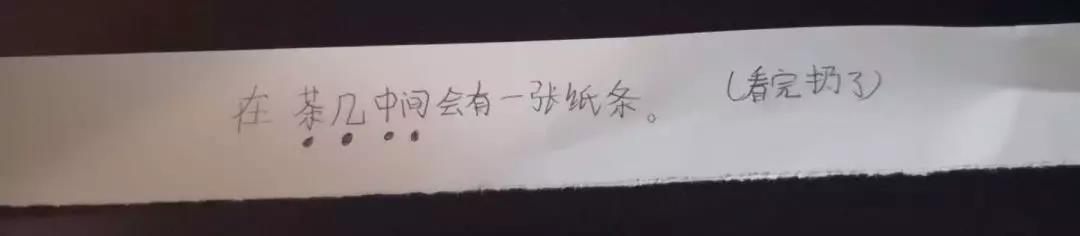 在茶几中间会有一张纸条。（看完扔了）